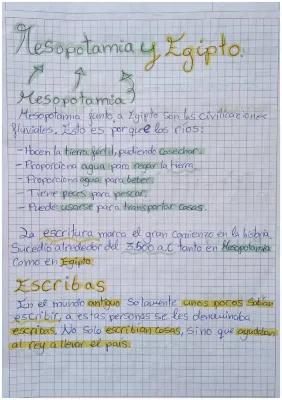 Mesopotamia y Egipto.
Mesopotamia
Mesopotamia junto a Egipto son las civilizaciones
fluviales. Esto es porque los ríos:
- Hacen la tierra fértil, pudiendo cosechar.
- Proporciona agua para regar la tierra.
- Proporciona agua para beber.
- Tiene peces para pescar.
- Puede usarse para transportar cosas.
La escritura marca el gran comienzo en la historia.
Sucedió alrededor del 3.500 a.C tanto en Mesopotamia
como en Egipto.
Escribas
En el mundo antiguo solamente unos pocos sabían
escribir, a estas personas se les denominaba
escribas. No solo escribían cosas, sino que ayudaban
al rey a llevar el país.